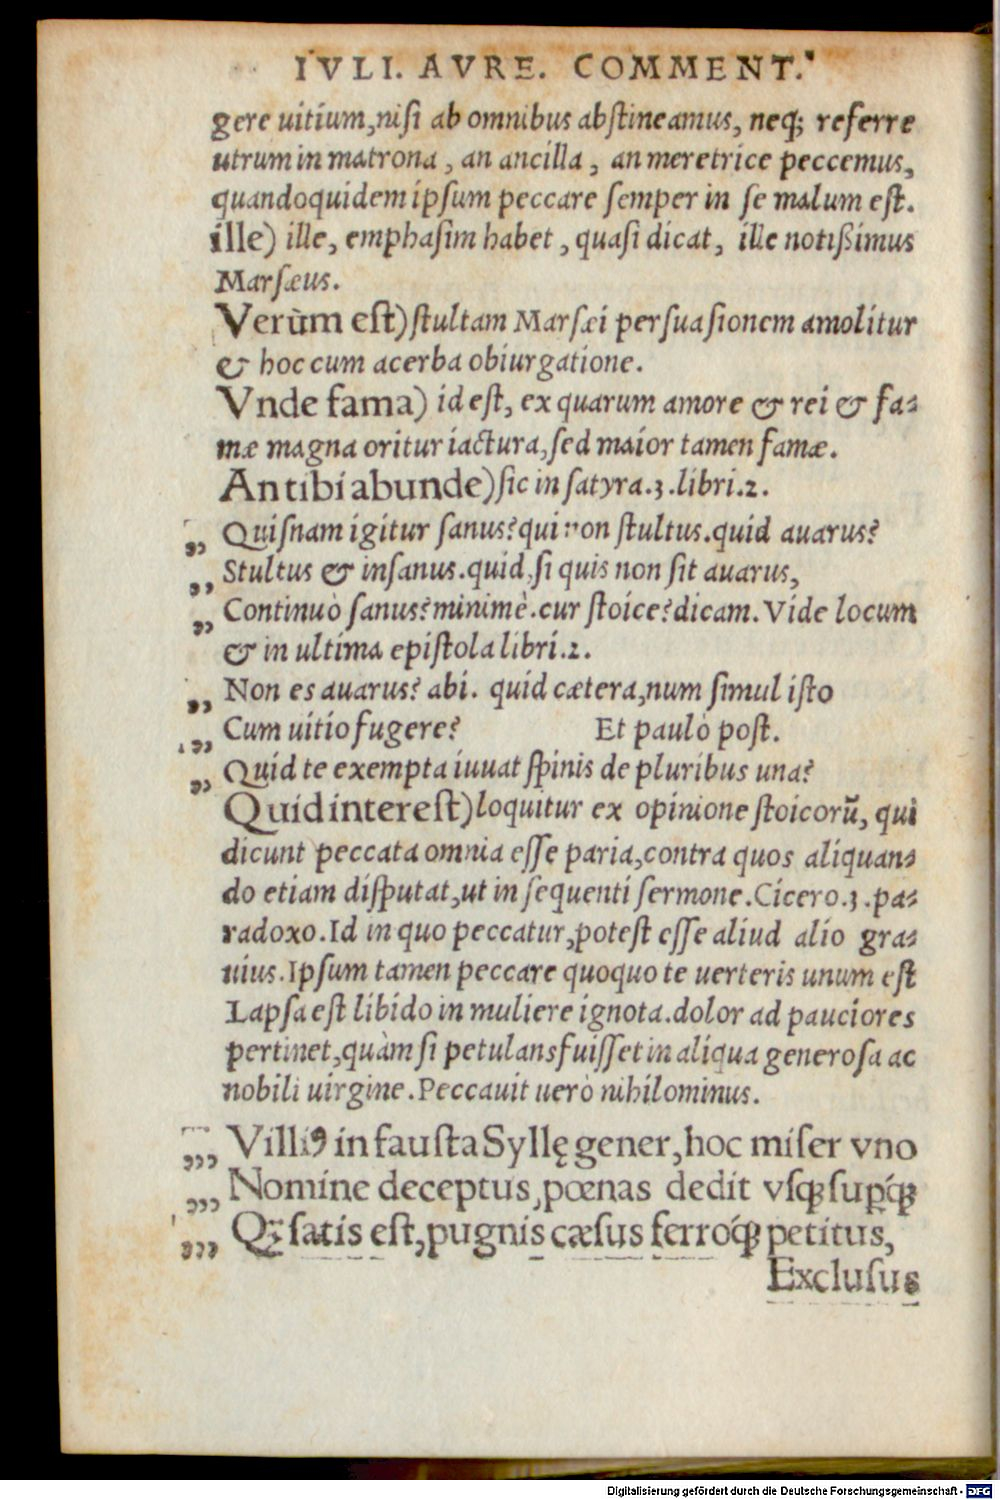 IVLI. AVRE. COMMENT.
gere uitium,nisi ab omnibus abstineamus, neq; referre
utrum in matrona, an ancilla, an meretrice peccemus,
quandoquidem ipsum peccare semper in se malum est.
ille) ille, emphasim habet, quasi dicat, ille notißimus
Marsæus.
Verùm est) stultam Marsæi persuasionem amolitur
& hoc cum acerba obiurgatione.
Vnde fama) id est, ex quarum amore & rei & fa-
mæ magna oritur iactura, sed maior tamen famæ.
An tibi abunde) sic in satyra.3.libri.2.
„ Quisnam igitur sanus? qui non stultus. quid auarus?
„ Stultus & insanus. quid, si quis non sit auarus,
„ Continuò sanus? minimè. cur stoice? dicam. Vide locum
& in ultima epistola libri.2.
„ Non es auarus? abi. quid cætera, num simul isto
„ Cum uitio fugere? Et paulò post.
„ Quid te exempta iuuat spinis de pluribus una?
Quid interest) loquitur ex opinione stoicorũ, qui
dicunt peccata omnia esse paria, contra quos aliquan-
do etiam disputat, ut in sequenti sermone. Cicero.3.pa-
radoxo. Id in quo peccatur, potest esse aliud alio gra-
uius. Ipsum tamen peccare quoquo te uerteris unum est
Lapsa est libido in muliere ignota. dolor ad pauciores
pertinet, quàm si petulans fuisset in aliqua generosa ac
nobili uirgine. Peccauit uerò nihilominus.
„, Villiꝰ in fausta Syllę gener, hoc miser vno
„, Nomine deceptus, pœnas dedit vsq; suꝑq́;
„, Qȝ satis est, pugnis cæsus ferroq́; petitus,
Exclusus
Digitalisierung gefördert durch die Deutsche Forschungsgemeinschaft - DFG